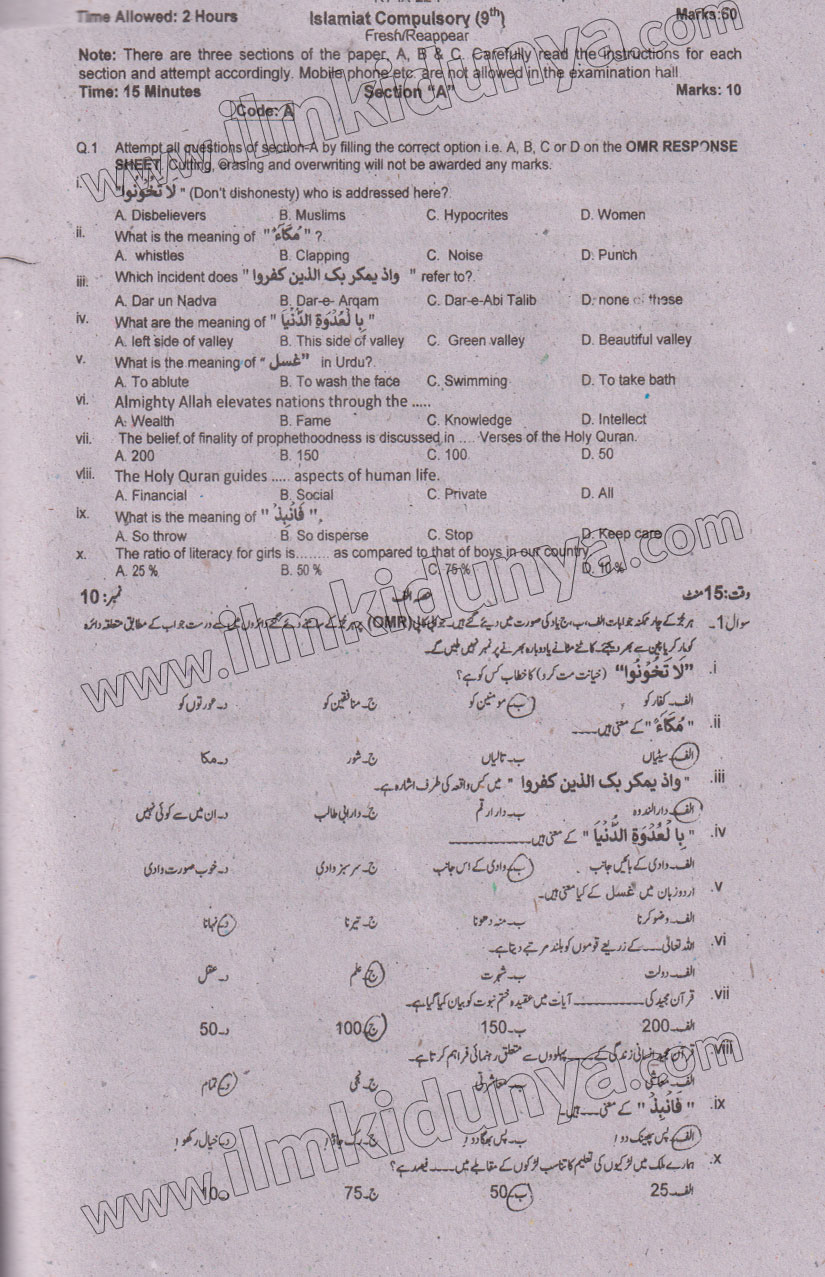 Time Allowed: 2 Hours Islamiat Compulsory (9th) Marks:60
Fresh/Reappear
Note: There are three sections of the paper, A, B & C. Carefully read the instructions for each
section and attempt accordingly. Mobile phone etc. are not allowed in the examination hall.
Time: 15 Minutes Section "A" Marks: 10
Code: A
Q.1 Attempt all questions of section-A by filling the correct option i.e. A, B, C or D on the OMR RESPONSE
SHEET. Cutting, erasing and overwriting will not be awarded any marks.
i. "لَا تَخُوْنُوا" (Don't dishonesty) who is addressed here?
A. Disbelievers B. Muslims C. Hypocrites D. Women
ii. What is the meaning of "مُكَآءً" ?
A. whistles B. Clapping C. Noise D: Punch
iii. Which incident does "واذ يمكر بك الذين كفروا" refer to?
A. Dar un Nadva B. Dar-e- Arqam C. Dar-e-Abi Talib D. none of these
iv. What are the meaning of "بِا لْعُدْوَةِ الدُّنْيَا"
A. left side of valley B. This side of valley C. Green valley D. Beautiful valley
v. What is the meaning of "غسل" in Urdu?
A. To ablute B. To wash the face C. Swimming D. To take bath
vi. Almighty Allah elevates nations through the .....
A: Wealth B. Fame C. Knowledge D. Intellect
vii. The belief of finality of prophethoodness is discussed in .... Verses of the Holy Quran.
A. 200 B. 150 C. 100 D. 50
viii. The Holy Quran guides ..... aspects of human life.
A. Financial B. Social C. Private D. All
ix. What is the meaning of "فَانْبِذْ".
A. So throw B. So disperse C. Stop D. Keep care
x. The ratio of literacy for girls is........ as compared to that of boys in our country
A. 25 % B. 50 % C. 75 % D. 10 %
وقت: 15 منٹ حصہ الف نمبر: 10
سوال 1۔ ہر جز کے چار ممکنہ جوابات الف، ب، ج یا د کی صورت میں دیے گئے ہیں۔ جوابی کاپی (OMR) پر ہر جز کے سامنے دیے گئے دائروں میں سے درست جواب کے مطابق متعلقہ دائرہ
کو مارکر یا پین سے بھر دیجیے۔ کاٹنے مٹانے یا دوبارہ بھرنے پر نمبر نہیں ملیں گے۔
i. "لَا تَخُوْنُوا" (خیانت مت کرو) کا خطاب کس کو ہے؟
الف۔ کفار کو ب۔ مومنین کو ج۔ منافقین کو د۔ عورتوں کو
ii. "مُكَآءً" کے معنی ہیں۔۔۔۔
الف۔ سیٹیاں ب۔ تالیاں ج۔ شور د۔ مکا
iii. "واذ يمكر بك الذين كفروا" میں کس واقعہ کی طرف اشارہ ہے۔
الف۔ دارالندوہ ب۔ دار ارقم ج۔ دار ابی طالب د۔ ان میں سے کوئی نہیں
iv. "بِا لْعُدْوَةِ الدُّنْيَا" کے معنی ہیں۔۔۔۔۔۔۔۔۔۔
الف۔ وادی کے بائیں جانب ب۔ وادی کے اس جانب ج۔ سرسبز وادی د۔ خوب صورت وادی
v. اردو زبان میں غسل کے کیا معنی ہیں۔
الف۔ وضو کرنا ب۔ منہ دھونا ج۔ تیرنا د۔ نہانا
vi. اللہ تعالیٰ۔۔۔۔ کے ذریعے قوموں کو بلند مرتبے دیتا ہے۔
الف۔ دولت ب۔ شہرت ج۔ علم د۔ عقل
vii. قرآن مجید کی۔۔۔۔۔۔۔۔۔۔ آیات میں عقیدہ ختم نبوت کو بیان کیا گیا ہے۔
الف۔ 200 ب۔ 150 ج۔ 100 د۔ 50
viii. قرآن مجید انسانی زندگی کے۔۔۔۔ پہلووں سے متعلق رہنمائی فراہم کرتا ہے۔
الف۔ معاشی ب۔ معاشرتی ج۔ نجی د۔ تمام
ix. "فَانْبِذْ" کے معنی۔۔۔۔ ہیں۔
الف۔ پس پھینک دو! ب۔ پس بھگا دو! ج۔ رک جاؤ! د۔ خیال رکھو!
x. ہمارے ملک میں لڑکیوں کی تعلیم کا تناسب لڑکوں کے مقابلے میں۔۔۔۔ فیصد ہے؟
الف۔ 25 ب۔ 50 ج۔ 75 د۔ 10
www.ilmkidunya.com
www.ilmkidunya.com
www.ilmkidunya.com